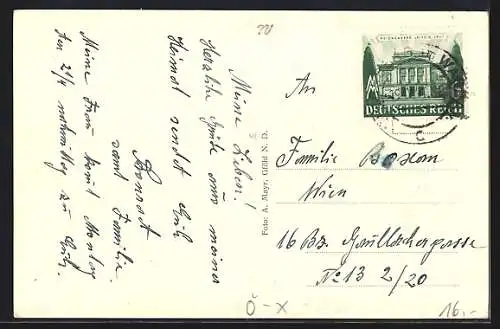 Meine Lieben!
Herzliche Grüße aus meiner
Heimat sendet Euch
Konrad
samt Familie.
Meine Frau kommt Montag
den 21/4 nachmittag zu Euch.
Foto: A. Mayr, Göthl N. D.
REICHSMESSE LEIPZIG 1941
DEUTSCHES REICH
c
An
Familie
Wien
16 Bz.
No 13 2/20
Ö-X
16.-